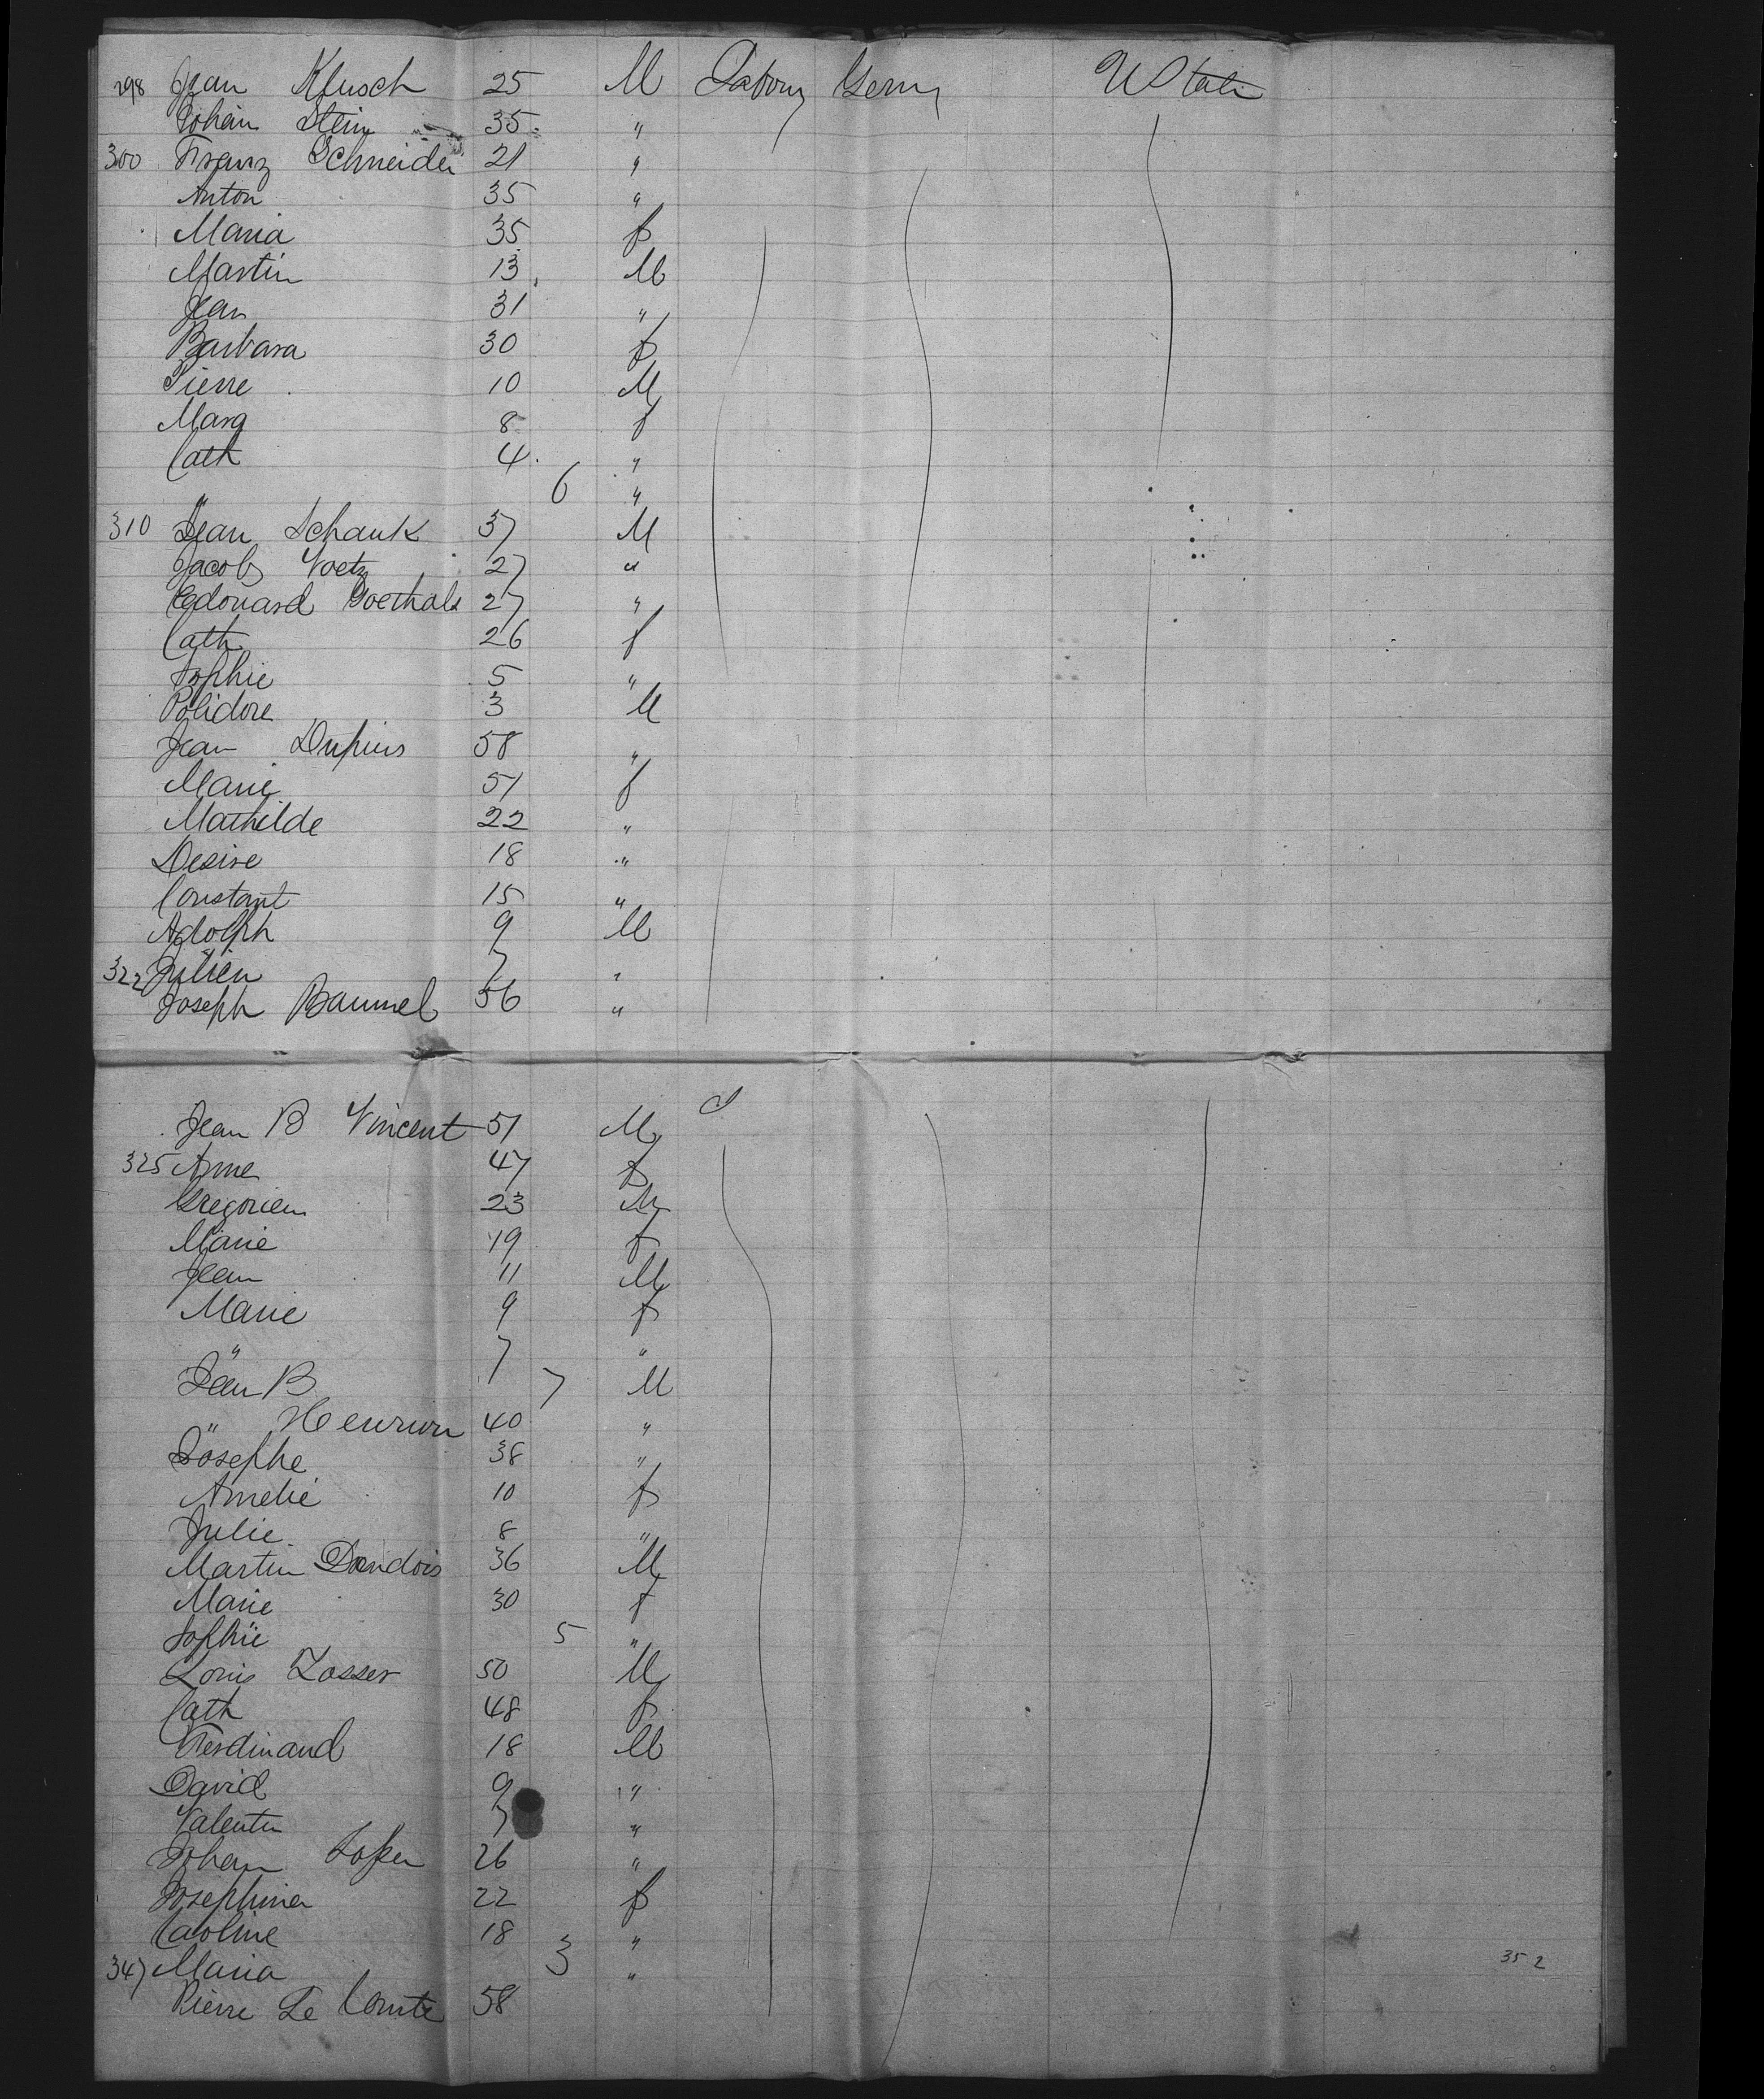 298 Jean Klusch 25 M Labour Germ U States
Johan Stein 35 "
300 Franz Schneider 21 "
Anton 35 "
Maria 35 f
Martin 13 M
Jean 31 "
Barbara 30 f
Pierre 10 M
Marg 8 f
Cath 4 "
" 6 "
310 Jean Schank 37 M
Jacob Voetz 27 "
Edouard Goethals 27 "
Cath 26 f
Sophie 5 "
Polidore 3 M
Jean Dupuis 58 "
Marie 51 f
Mathilde 22 "
Desire 18 "
Constant 15 "
Adolph 9 M
322 Julien 7 "
Joseph Baumel 56 "
Jean B Vincent 51 M
325 Anne 47 f
Gregorien 23 M
Marie 19 f
Jean 11 M
Marie 9 f
" 7 "
Jean B 7 M
" Henrion 40 "
Josephe 38 "
Amelie 10 f
Julie 8 "
Martin Dandois 36 M
Marie 30 f
Sophie 5 "
Louis Zosser 50 M
Cath 48 f
Ferdinand 18 M
David 9 "
Valentin 7 "
Johan 26 "
Josephine 22 f
Caroline 18 "
347 Maria 3 "
352
Pierre Le Comte 58